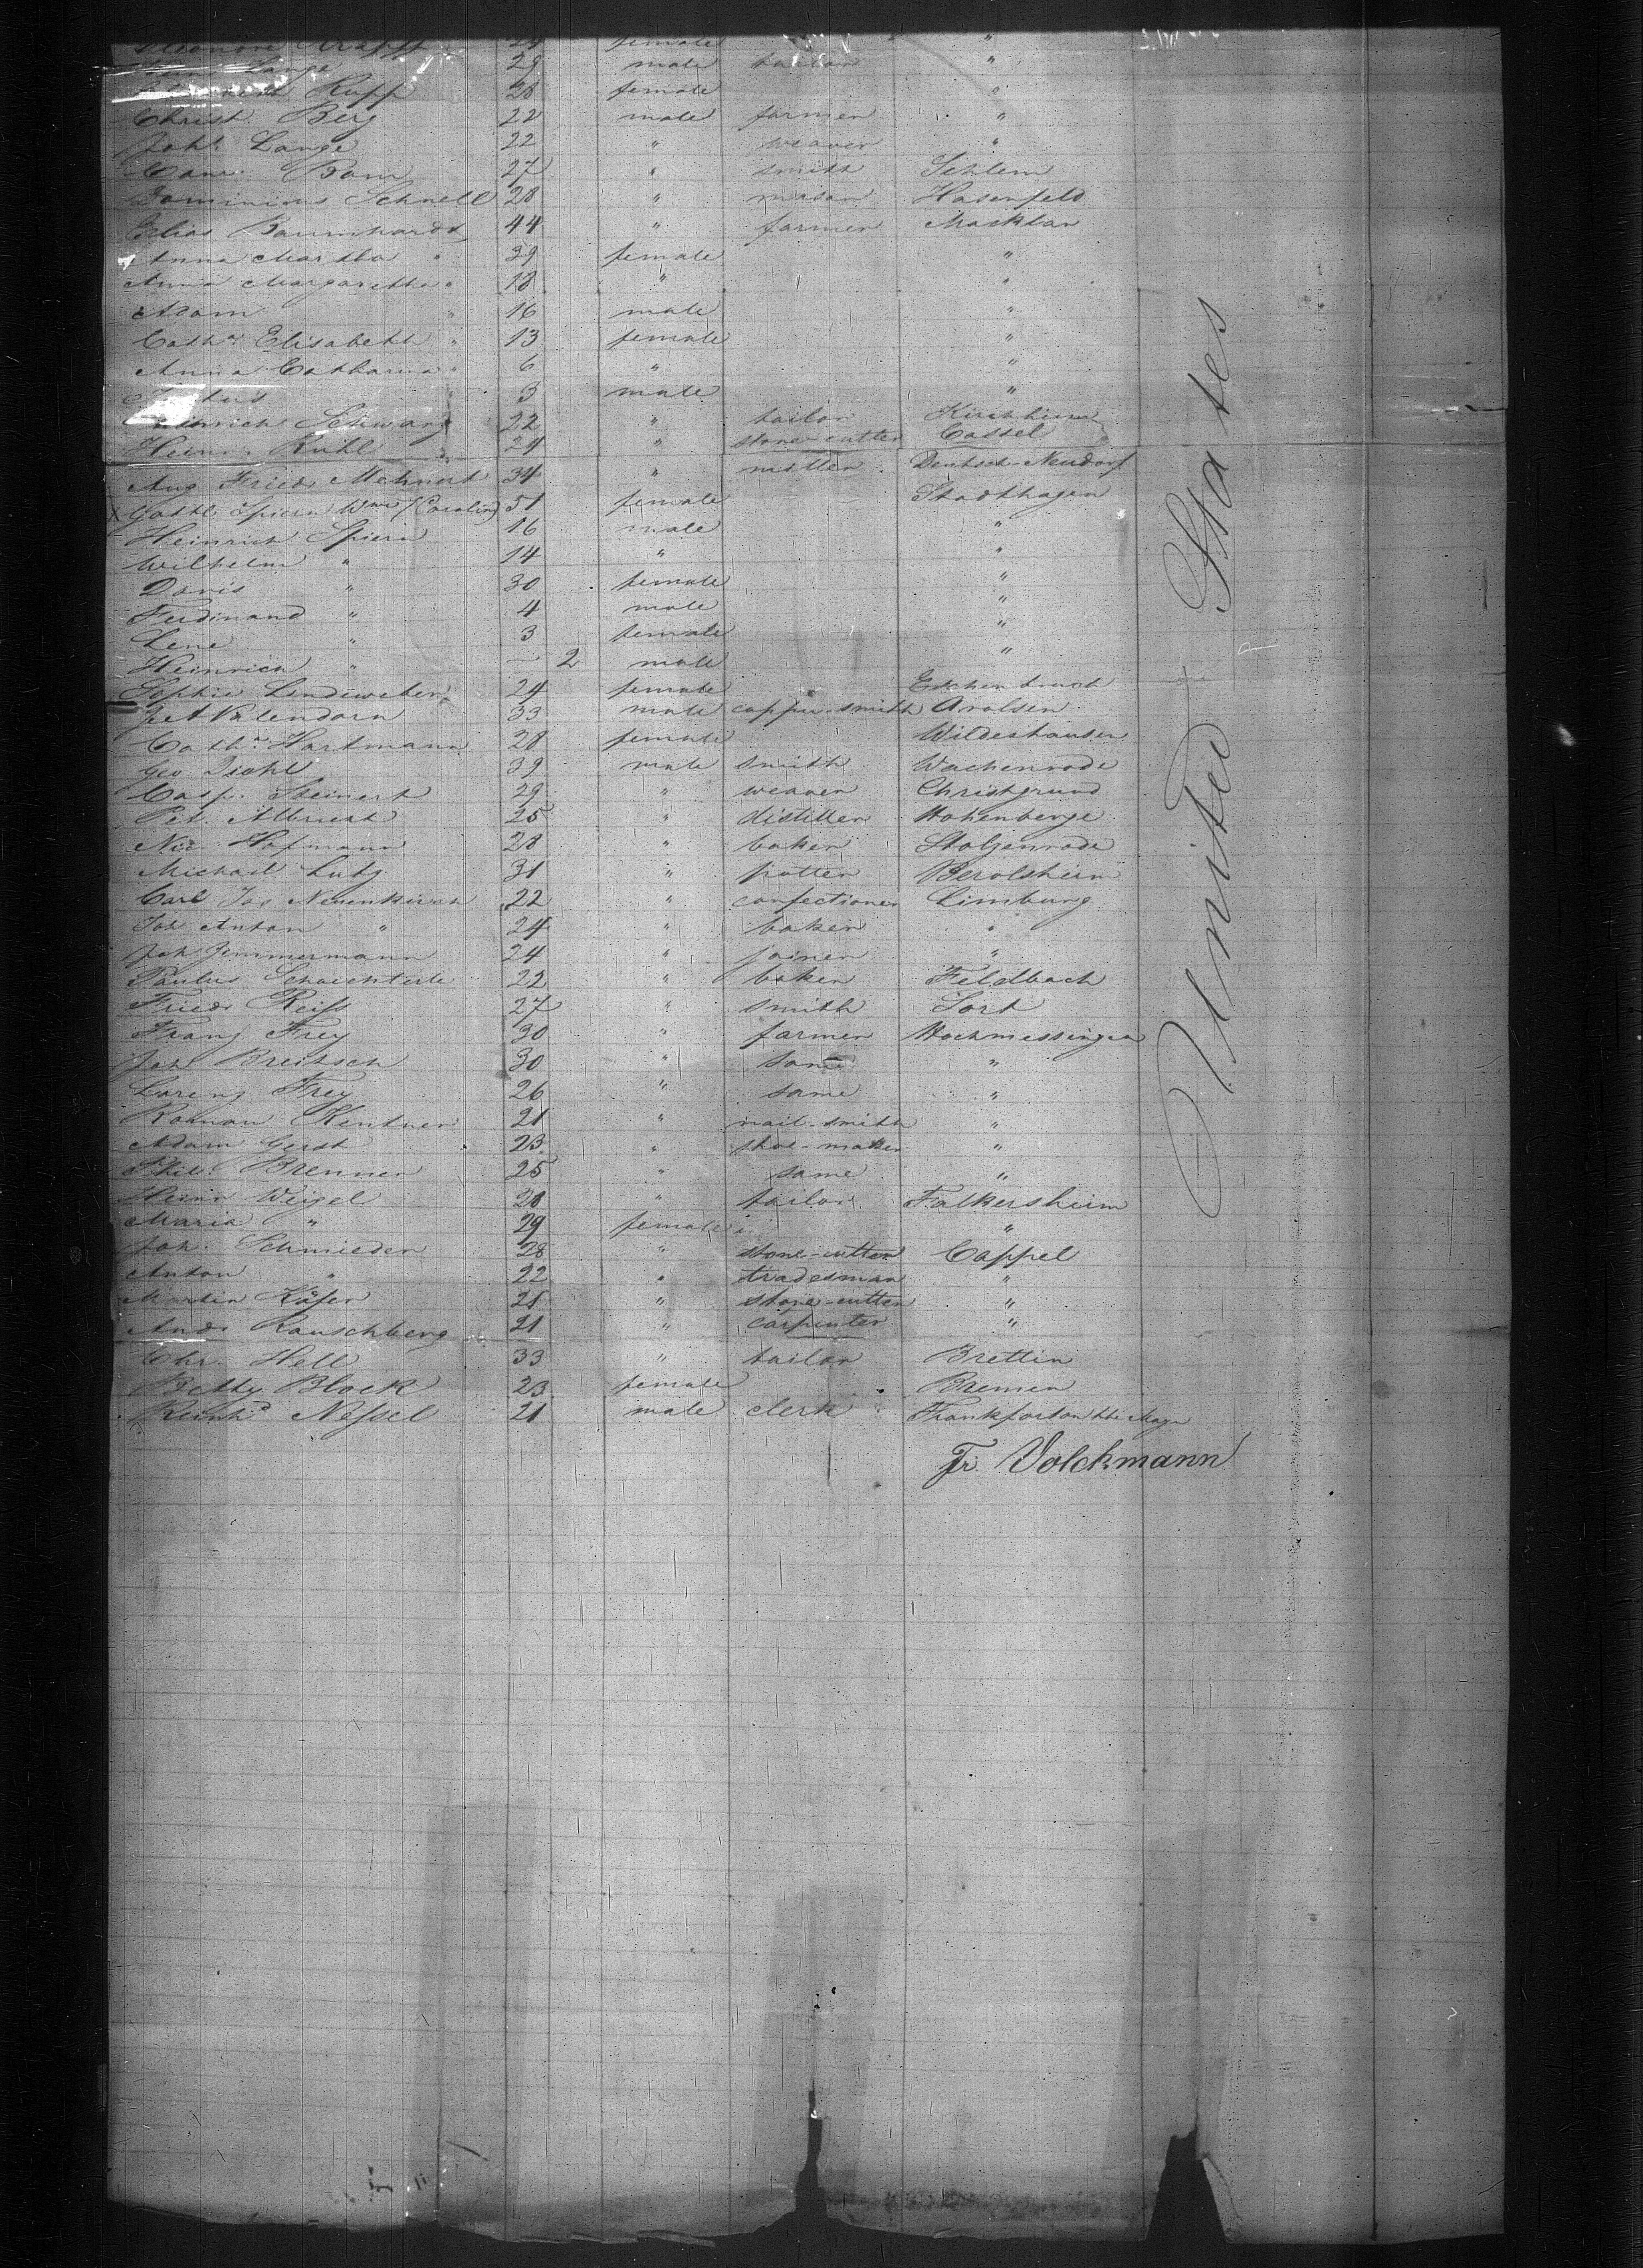 Eleonore Krapff 24 female " "
Lange 29 male tailor "
Rupp 28 female "
Christ. Berg 22 male farmer "
Joh. Lange 22 " weaver "
Bom 27 " smith Schlem
Dominicus Schnell 28 " mason Hasenfeld
Elias Baumhardt 44 " farmer
Anna Martha " 39 female "
Anna Margaretha " 18 " "
Adam " 16 male "
Cathe. Elisabeth " 13 female "
Anna Catharina " 6 " "
3 male "
Heinrich Schwarz 22 " tailor Kirchheim
Heinr. Rühl 24 " stone-cutter Cassel
Aug. Friedr. Mehnert 34 " Deutsch-Neudorf
Gottl. Spiera Wwe (Carolin) 51 female Stadthagen
Heinrich Spiera 16 male "
Wilhelm " 14 " "
Doris " 30 female "
Ferdinand " 4 male "
Lene " 3 female "
Heinrich " - 2 male "
Sophie 24 female Eschenbruch
33 male copper-smith Arolsen
Cathe. Hartmann 28 female Wildeshausen
Geo Diehl 39 male smith Wachenrode
Casp. Steinert 29 " weaver Christgrund
Pet. Albrecht 25 " distiller Hohenberge
Nic. Hofmann 28 " baker Stolzenrode
Michael Lutz 31 " potter Berolsheim
Carl Jos Neuenkirch 22 " confectioner Limburg
Joh Anton " 24 " baker "
Joh Zimmermann 24 " joiner "
Paulus Schaechterle 22 " baker Feldbach
Friedr Reiss 27 " smith
Franz Frey 30 " farmer Hochmessingen
Joh Breitsch 30 " same "
Lorenz Frey 26 " same "
Roman Kentner 21 " nail-smith "
Adam Gerst 23 " shoe-maker "
Phil. Brenner 25 " same "
Heinr Weigel 28 " tailor Falkersheim
Maria " 29 female "
Joh. Schmieder 28 " stone-cutter Cappel
Anton " 22 " tradesman "
Martin Käfer 25 " stone-cutter "
Andr Rauschberg 21 " carpenter "
Chr. Hell 33 " tailor Brettin
Betty Block 23 female Bremen
Reinhd Nessel 21 male clerk Frankfort on the Mayn
Fr. Volckmann
United States